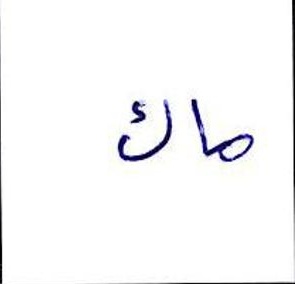 ماك